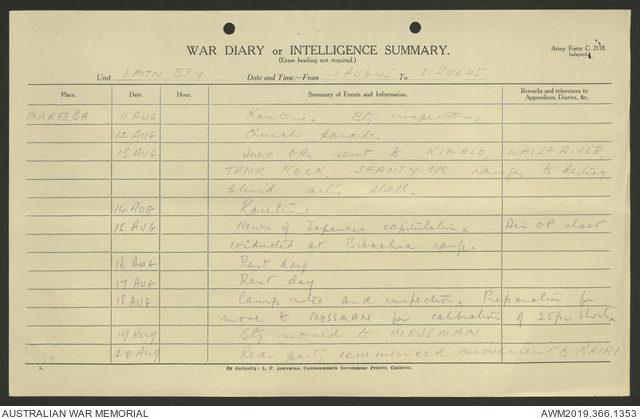 WAR DIARY or INTELLIGENCE SUMMARY.
(Erase heading not required.)
Army Form C. 2118.
(adapted)
Unit 1 MTN BTY Date and Time.—From 1 AUG 45 To 31 AUG 45
Place. Date. Hour. Summary of Events and Information. Remarks and references to Appendices, Diaries, &c.
MAREEBA 11 AUG Routine. Bty inspection.
12 AUG Church parade.
13 AUG Two OR sent to WALSH RIVER,
TANK ROCK, SHANTY CK ranges to destroy
blind arty shell.
14 AUG Routine
15 AUG News of Japanese capitulation. Air OP shoot
conducted at range.
16 AUG Rest day
17 AUG Rest day
18 AUG Camp and inspection. Preparation for
move to MOSSMAN for calibration of 25pr
19 Aug Bty moved to MOSSMAN
20 Aug Rear party commenced movement to KAIRI
By Authority: L. F. Johnston, Commonwealth Government Printer, Canberra.
AUSTRALIAN WAR MEMORIAL
AWM2019.366.1353